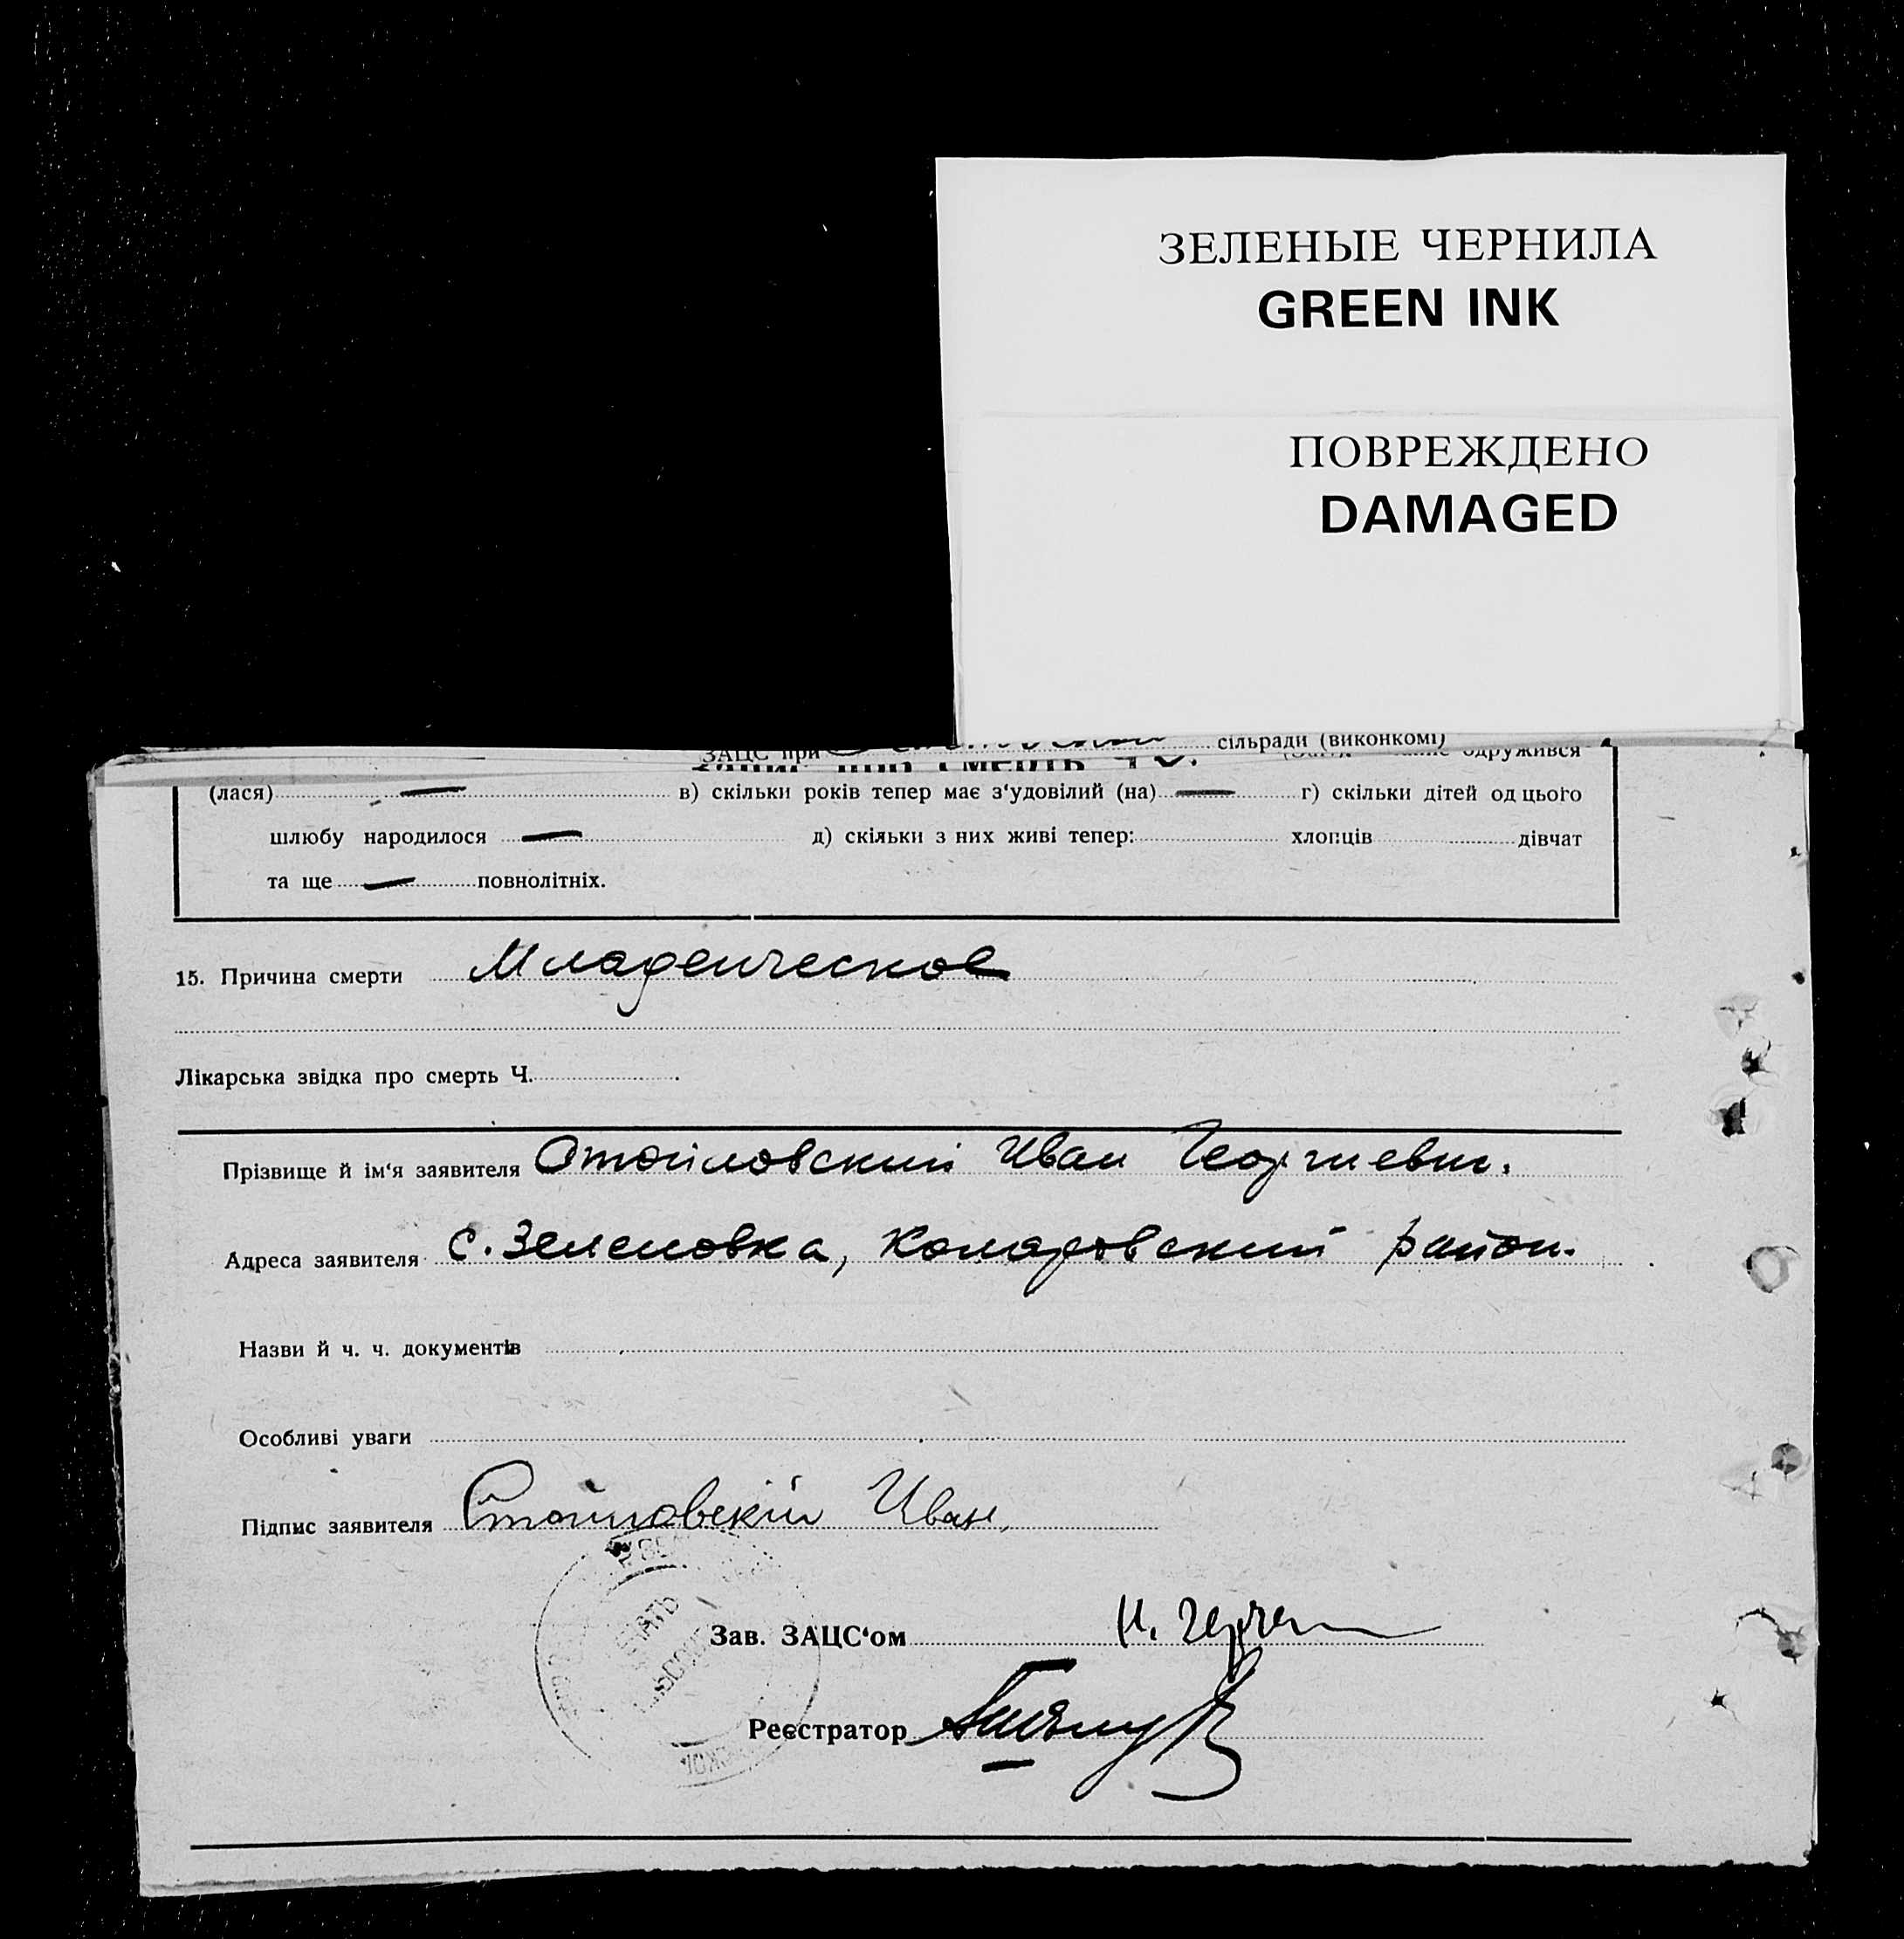 ЗЕЛЕНЫЕ ЧЕРНИЛА
GREEN INK
ПОВРЕЖДЕНО
DAMAGED
ЗАЦС при сільради (виконкомі)
одружився
(лася) — в) скільки років тепер має з‘удовілий (на) — г) скільки дітей од цього
шлюбу народилося — д) скільки з них живі тепер: хлопців дівчат
та ще — повнолітніх.
15. Причина смерти Младенческое
Лікарська звідка про смерть Ч.
Прізвище й ім‘я заявителя Стойловский Иван Георгиевич.
Адреса заявителя с. Зеленовка, Комаровский район.
Назви й ч. ч. документів
Особливі уваги
Підпис заявителя Стойловскій Иван.
Зав. ЗАЦС‘ом
Реєстратор